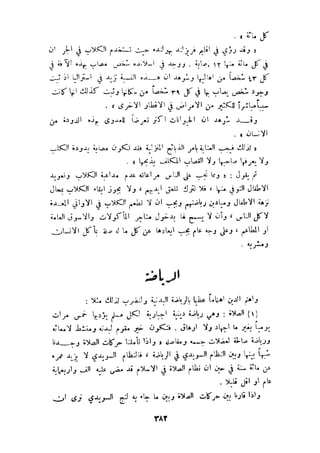 كل مائة » .
وقد رؤي في اقليم فريزيه يزيه حيث تستخدم الكلاب في الجر أن
في كل مائة منها ١٢ يصاب . ووجود الاسلاخ شخص يصاب بهذه الآفة في
كل ٤٣ شخصاً من اهاليها وشوهد أن هذه النسبة تزيد في استراليا اذ تبت
وجود شخص يصاب بها في كل ٣٩ شخصاً من سكانها وثبت كذلك أنها كانت
سبباً مباشراً للكثير من الامراض في الاقطار الاخرى » .
وقد شوهد أن الحيوانات أكثر تعرضاً للعدوى بهذه الدودة من
الانسان » .
فيجب لذلك العناية بأمر الذبائح المنزلية فقد تكون مصابة بدودة الكلب
ولا يعرفها صاحبها ولا القصاب فالمكلف يذبحها » .
ثم يقول : « ومما يجب على الناس مراعاته عدم مداعبة الكلاب وتعويد
الاطفال التوقي منها ، فلا تترك تلعق أيديهم ، ولا يجوز ابقاء الكلاب بمحال
نزهة الاطفال وميادين رياضتهم ويجب أن لا تطعم الكلاب في الاواني المعدة
لاكل الناس ، وأن لا يسمح لها بدخول متاجر المأكولات والاسواق العامة
أو المطاعم ، وعلى وجه عام يجب ابعادها عن كل ما له صلة بمأكل الانسان
ومشربه .
الرياضة
واهتم الدين اهتماماً عظيماً بالرياضة البدنية ولنضرب لذلك مثلاً :
{١} الصلاة : وهي رياضة دينية اجبارية لكل مسلم يؤديها خمس مرات
يومياً بغير ما اجهاد ولا ارهاق . فتكون خير مقوم لبدنه ومنشط لأمعائه
ورياضة صالحة لعضلات جسمه ومفاصله ، واذا تأملنا حركات الصلاة وجدنا
شبهاً بينها وبين النظام السويدي في الرياضة ، فالنظام السويدي لا يزيد عمره
عن مائة سنة في حين أن نظام الصلاة في الاسلام قد مضى عليه ألف واربعمائة
عام او أقل قليلا .
واذا قارنا بين حركات الصلاة وبين ما جاء به لنج السويدي نرى ان
٣٨٢